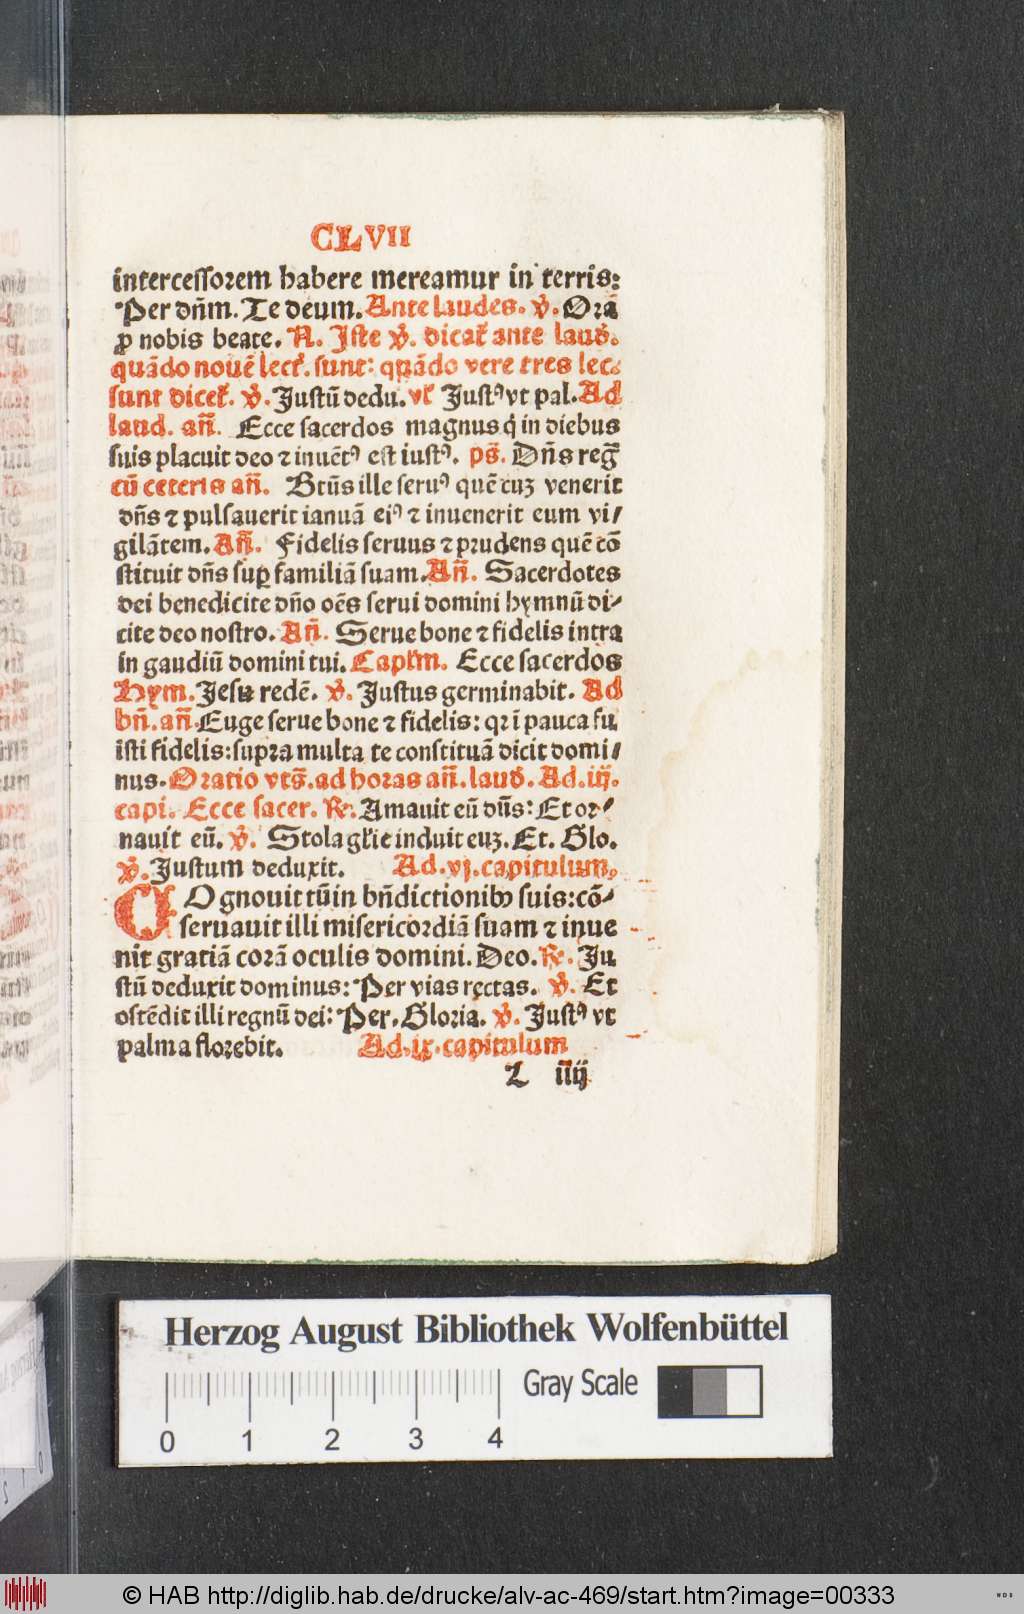 CLVII
intercessorem habere mereamur in terris:
Per dñm. Te deum. Ante laudes. ℣. Ora
ꝓ nobis beate. R. Iste ℣. dicat᷑ ante laud᷑.
quādo nouē lect᷑. sunt: quādo vere tres lec.
sunt dicet᷑. ℣. Justū dedu. vl᷑ Justꝰ vt pal. Ad
laud. añ. Ecce sacerdos magnus q̇ in diebus
suis placuit deo ⁊ inuētꝰ est iustꝰ. ps̄. Dñs reg̃
cū ceteris añ. Btūs ille seruꝰ quē cuꝫ venerit
dñs ⁊ pulsauerit ianuā eiꝰ ⁊ inuenerit eum vi/
gilātem. Añ. Fidelis seruus ⁊ prudens quē cō
stituit dñs suꝑ familiā suam. Añ. Sacerdotes
dei benedicite dño oēs serui domini hymnū di/
cite deo nostro. Añ. Serue bone ⁊ fidelis intra
in gaudiū domini tui. Capľm. Ecce sacerdos
Hym. Jesu redē. ℣. Justus germinabit. Ad
bñ. añ. Euge serue bone ⁊ fidelis: qꝛ ī pauca fu
isti fidelis: supra multa te constituā dicit domi/
nus. Oratio vts̄. ad horas añ. laud᷑. Ad. iij.
capi. Ecce sacer. ℟. Amauit eū dñs: Et or/
nauit eū. ℣. Stola gľie induit euꝫ. Et. Glo.
℣. Justum deduxit. Ad. vj. capitulum.
COgnouit tūin bñdictionibꝰ suis: cō/
seruauit illi misericordiā suam ⁊ inue
nit gratiā corā oculis domini. Deo. ℟. Ju
stū deduxit dominus: Per vias rectas. ℣. Et
ostēdit illi regnū dei: Per. Gloria. ℣. Justꝰ vt
palma florebit. Ad. ix. capitulum
L iiij
Herzog August Bibliothek Wolfenbüttel
Gray Scale
0 1 2 3 4
© HAB http://diglib.hab.de/drucke/alv-ac-469/start.htm?image=00333